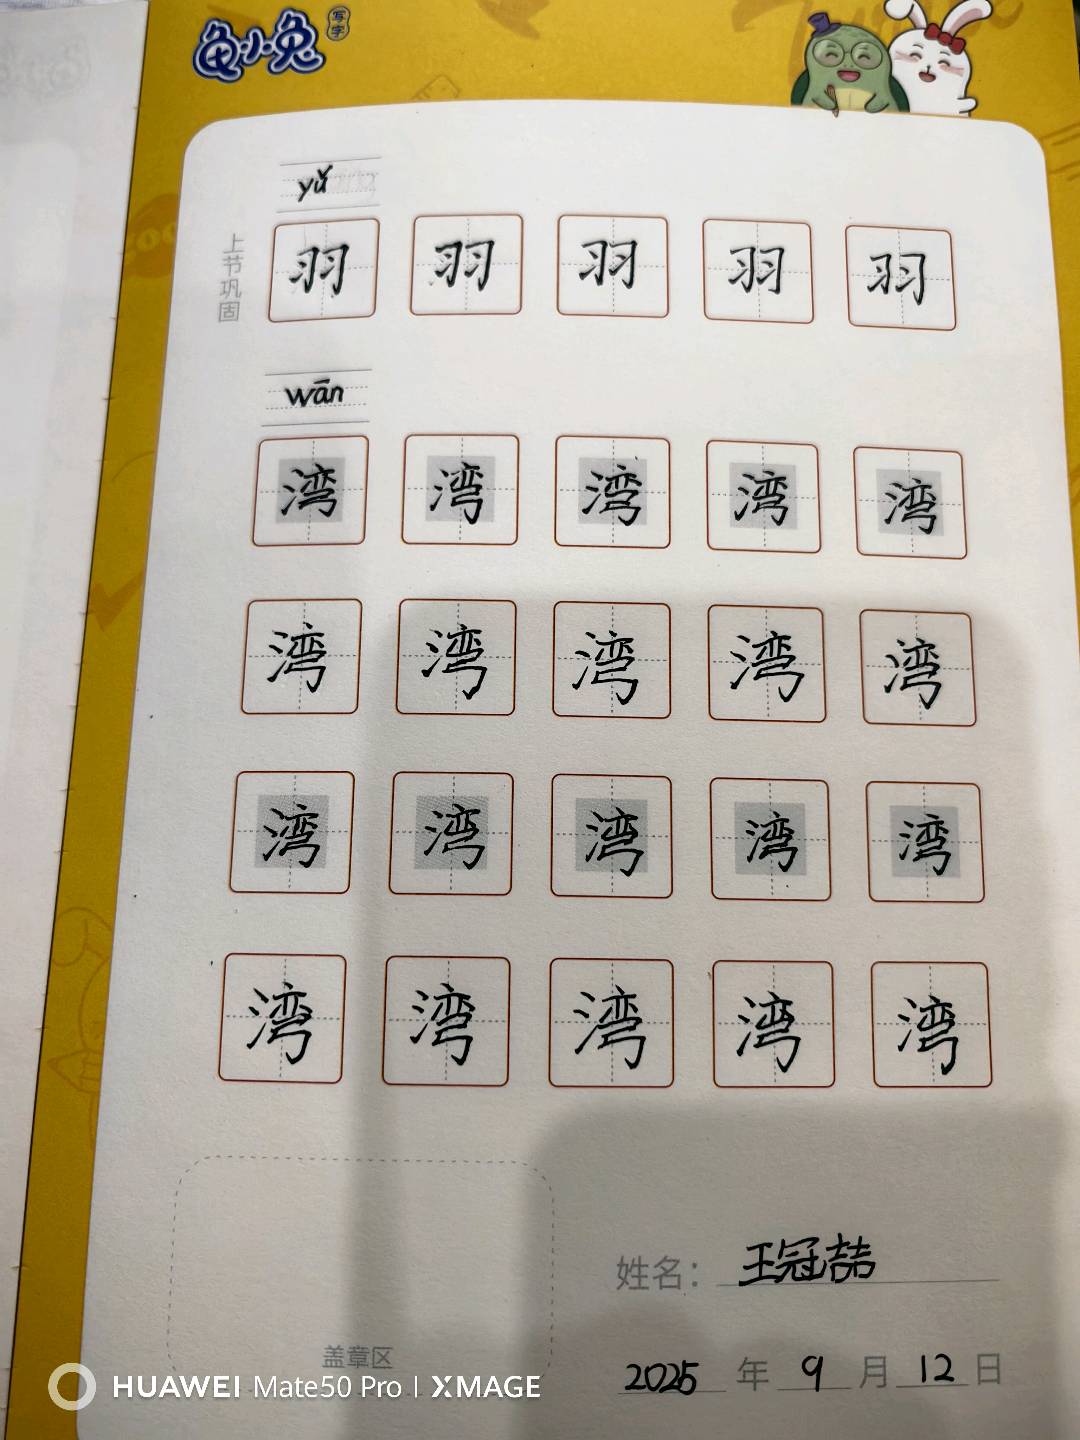 龟小兔
写字
yǔ
上节巩固
羽 羽 羽 羽 羽
wān
湾 湾 湾 湾 湾
湾 湾 湾 湾 湾
湾 湾 湾 湾 湾
湾 湾 湾 湾 湾
姓名: 王冠喆
盖章区
2025 年 9 月 12 日
HUAWEI Mate50 Pro | XMAGE